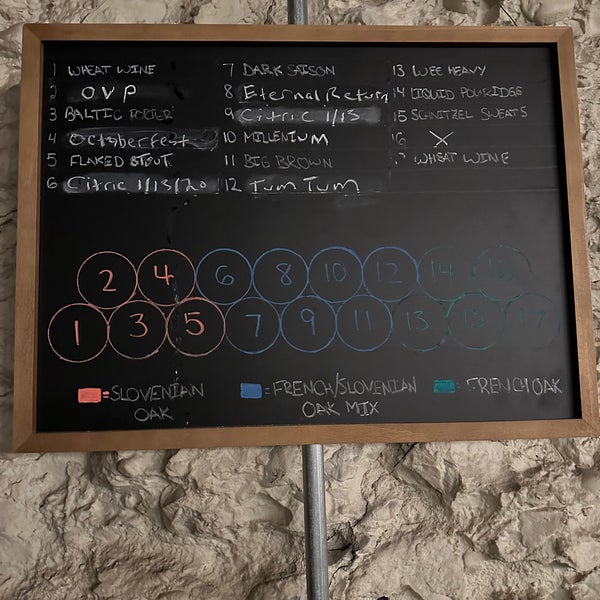 1 WHEAT WINE
2 OVP
3 BALTIC PORTER
4 Octoberfest
5 FLAKED STOUT
6 Citric 1/13/20
7 DARK SAISON
8 Eternal Return
9 Citric 1/13
10 MILLENIUM
11 BIG BROWN
12 Tum Tum
13 WEE HEAVY
14 LIQUID PORRIDGE
15 SCHNITZEL SWEATS
16 X
WHEAT WINE
2 4 6 8 10 12 14 16
1 3 5 7 9 11 13 15 17
=SLOVENIAN OAK
=FRENCH/SLOVENIAN OAK MIX
=FRENCH OAK